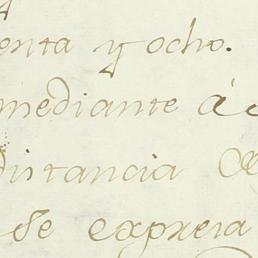 enta y ocho.
mediante á
distancia
se expresa